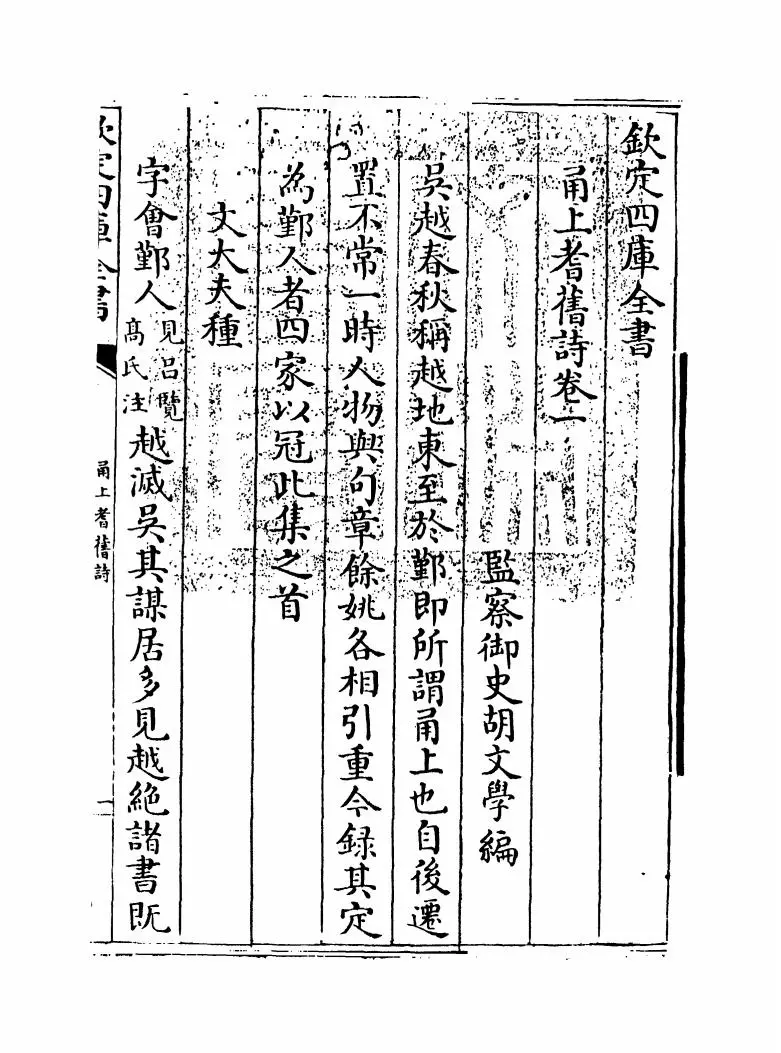 欽定四庫全書
甬上耆舊詩卷一
監察御史胡文學編
吳越春秋稱越地東至於鄞即所謂甬上也自後遷
置不常一時人物與句章餘姚各相引重今録其定
為鄞人者四家以冠此集之首
文大夫種
字會鄞人見吕覽髙氏注越滅吳其謀居多見越絶諸書既
欽定四庫全書
甬上耆舊詩
一